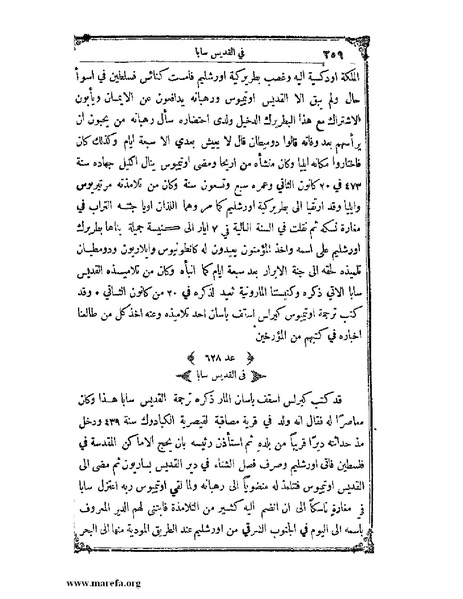 في القديس سابا
٣٥٩
الملكة اودكسية اليه وغصب بطريركية اورشليم فامست كنائس فلسطين في اسوأ
حال ولم يبق الا القديس اوتيموس ورهبانه يدافعون عن الايمان ويأبون
الاشتراك مع هذا البطريرك الدخيل ولدى احتضاره سأل رهبانه من يحبون ان
يرأسهم بعد وفاته قالوا دومطيان قال لا يعيش بعدي الا سبعة ايام وكذلك كان
فاختاروا مكانه ايليا وكان منشأه من اريحا ومضى اوتيموس ينال اكليل جهاده سنة
٤٧٣ في ٢٠ كانون الثاني وعمره سبع وتسعون سنة وكان من تلامذته مرتيريوس
وايليا وقد ارتقيا الى بطريركية اورشليم كما مر وهما اللذان اويا جثته التراب في
مغارة نسكه ثم نقلت في السنة التالية في ٧ ايار الى كنيسة جميلة بناها بطريرك
اورشليم على اسمه واخذ المؤمنون يعيدون له كانطونيوس وايلاريون ودومطيان
تلميذه لحقه الى جنة الابرار بعد سبعة ايام كما انبأه وكان من تلاميذه القديس
سابا الاتي ذكره وكنيستنا المارونية تعيد لذكره في ٢٠ من كانون الثاني * وقد
كتب ترجمة اوتيموس كيرلس اسقف باسان احد تلاميذه وعنه اخذ كل من طالعنا
اخباره في كتبهم من المؤرخين
عد ٦٢٨
في القديس سابا
قد كتب كيرلس اسقف باسان المار ذكره ترجمة القديس سابا هذا وكان
معاصرا له فقال انه ولد في قرية مصاقبة لقيصرية الكبادوك سنة ٤٣٩ ودخل
منذ حداثته ديرًا قريبًا من بلده ثم استأذن رئيسه بان يحج الاماكن المقدسة في
فلسطين فاتى اورشليم وصرف فصل الشتاء في دير القديس بساريون ثم مضى الى
القديس اوتيموس فتتلمذ له منضويًا الى رهبانه ولما لقي اوتيموس ربه اعتزل سابا
في مغارة ناسكًا الى ان انضم اليه كثير من التلامذة فابتنى لهم الدير المعروف
باسمه الى اليوم في الجنوب الشرقي من اورشليم عند الطريق المودية منها الى البحر
www.marefa.org